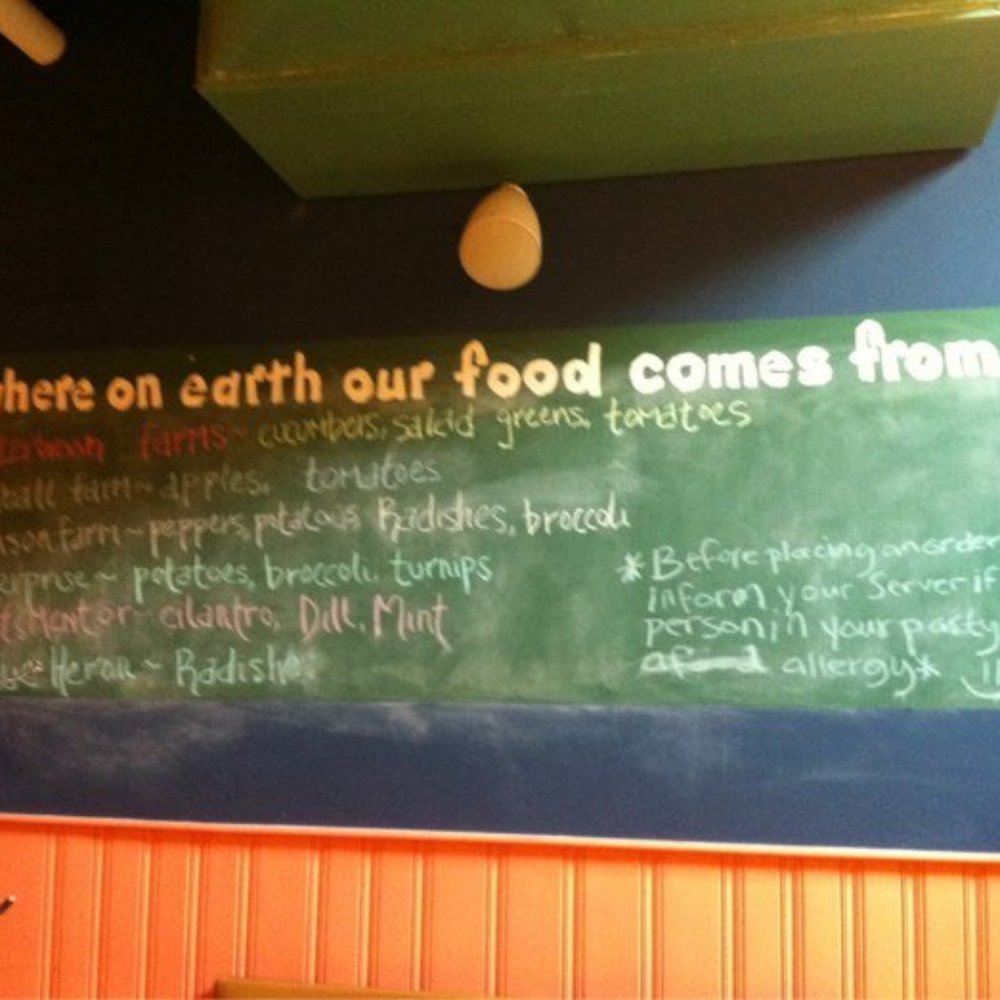 here on earth our food comes from
farms ~ cucumbers, salad greens, tomatoes
hall farm ~ apples, tomatoes
son farm ~ peppers, potatoes Radishes, broccoli
erprise ~ potatoes, broccoli, turnips
Mentor ~ cilantro, Dill, Mint
Heron ~ Radishes
*Before placing an order
inform your Server if
person in your party
a food allergy*